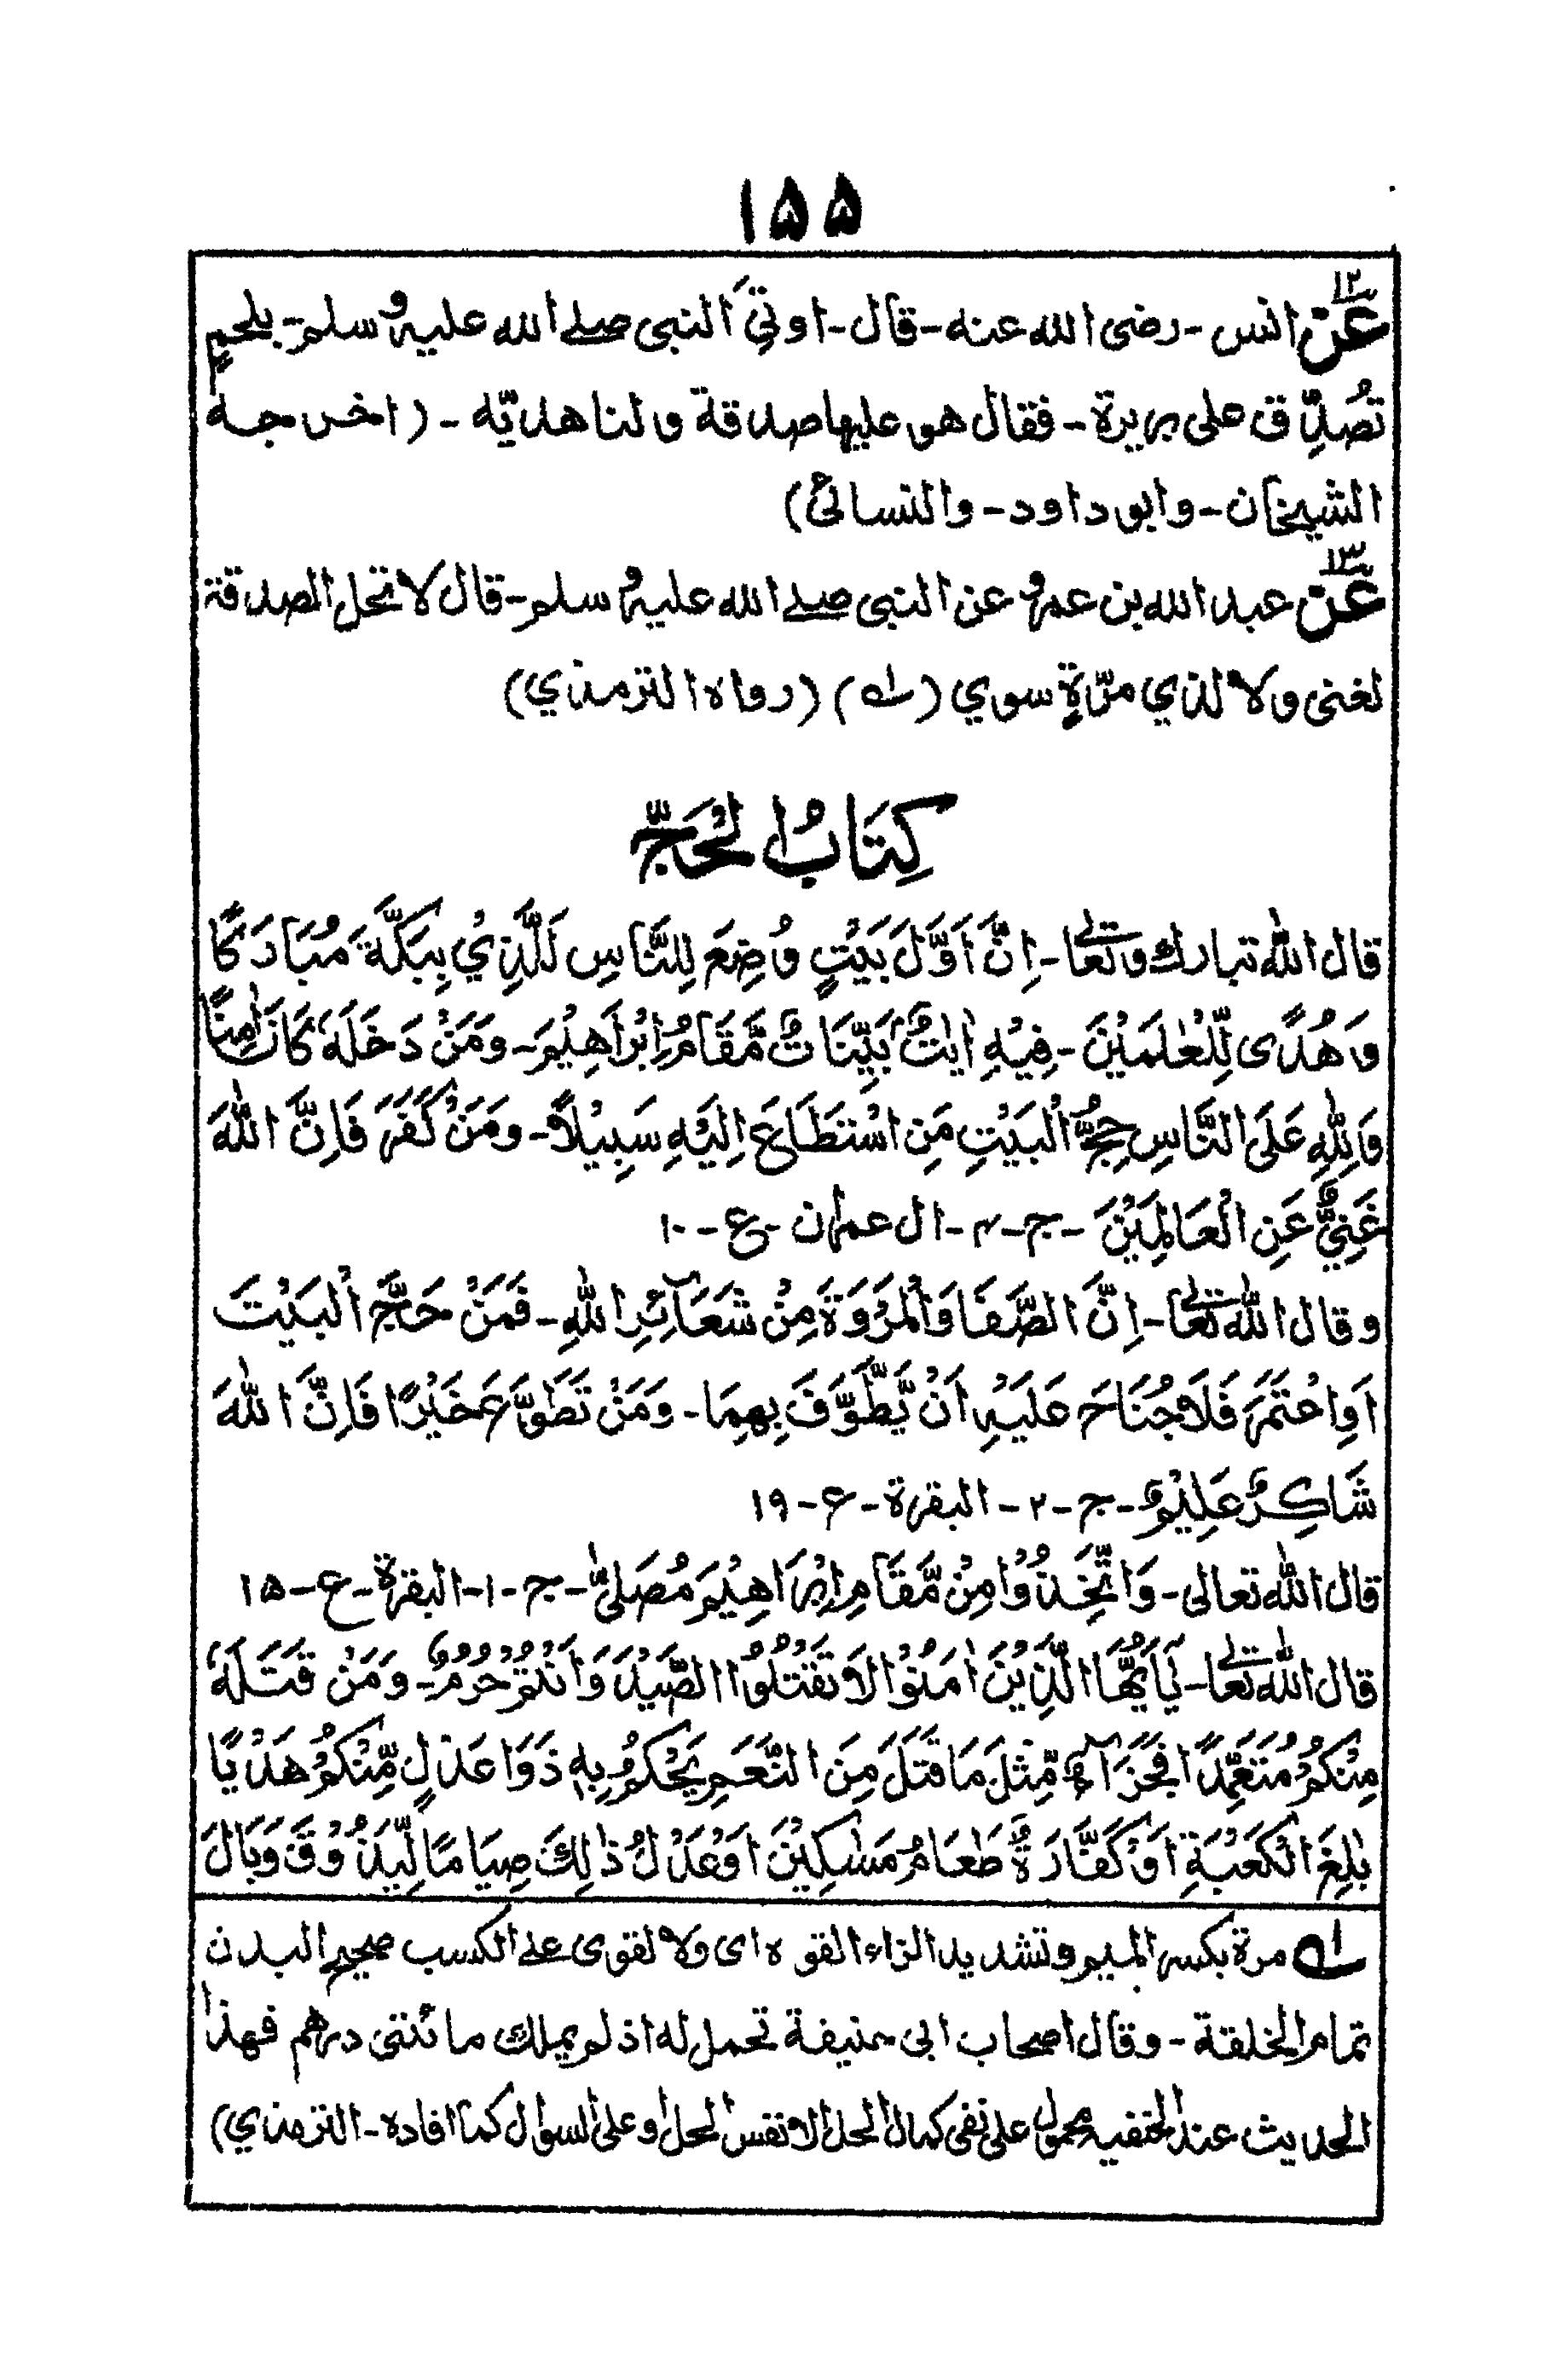 ١٥٥
١٢ عن انس - رضى الله عنه - قال - اوتِيَ النبى صلے الله عليه وسلم - بلحمٍ
تُصُدِّق على بريرة - فقال هو عليها صدقة ولنا هديّه - (اخرجه
الشيخان - وابو داود - والنسائى)
١٣ عن عبد الله بن عمرو عن النبى صلے الله عليه وسلم - قال لا تحل الصدقة
لغنى ولا لذي مرّةٍ سوي (له) (رواه الترمذي)
كِتَابُ الْحَجِّ
قال الله تبارك وتعالى - اِنَّ اَوَّلَ بَيْتٍ وُضِعَ لِلنَّاسِ لَلَّذِيْ بِبَكَّةَ مُبَارَكًا
وَهُدًى لِّلْعٰلَمَيْنَ - فِيْهِ اٰيٰتٌ بَيِّنَاتٌ مَّقَامُ اِبْرَاهِيْمَ - وَمَنْ دَخَلَهٗ كَانَ اٰمِنًا
وَلِلّٰهِ عَلَى النَّاسِ حِجُّ الْبَيْتِ مَنِ اسْتَطَاعَ اِلَيْهِ سَبِيْلًا - وَمَنْ كَفَرَ فَاِنَّ اللّٰهَ
غَنِيٌّ عَنِ الْعَالَمِيْنَ - ج - ٤ - ال عمران - ع - ١٠
وقال الله تعالى - اِنَّ الصَّفَا وَالْمَرْوَةَ مِنْ شَعَآئِرِ اللّٰهِ - فَمَنْ حَجَّ الْبَيْتَ
اَوِ اعْتَمَرَ فَلَا جُنَاحَ عَلَيْهِ اَنْ يَّطَّوَّفَ بِهِمَا - وَمَنْ تَطَوَّعَ خَيْرًا فَاِنَّ اللّٰهَ
شَاكِرٌ عَلِيْمٌ - ج - ٢ - البقرة - ع - ١٩
قال الله تعالى - وَاتَّخِذُوْا مِنْ مَّقَامِ اِبْرَاهِيْمَ مُصَلىًّ - ج - ١ - البقرة - ع - ١٥
قال الله تعالى - يَاَيُّهَا الَّذِيْنَ اٰمَنُوْا لَا تَقْتُلُوا الصَّيْدَ وَاَنْتُمْ حُرُمٌ - وَمَنْ قَتَلَهٗ
مِنْكُمْ مُتَعَمِّدًا فَجَزَآءٌ مِّثْلُ مَا قَتَلَ مِنَ النَّعَمِ يَحْكُمُ بِهٖ ذَوَا عَدْلٍ مِّنْكُمْ هَدْيًا
بٰلِغَ الْكَعْبَةِ اَوْ كَفَّارَةٌ طَعَامُ مَسٰكِيْنَ اَوْ عَدْلُ ذٰلِكَ صِيَامًا لِّيَذُوْقَ وَبَالَ
له مرة بكسر الميم وتشديد الراء القوه اى ولا لقوى على الكسب صحيح البدن
تمام الخلقة - وقال اصحاب ابى حنيفة تحمل له اذ لم يملك مائتى درهم فهذا
الحديث عند الحنفيه محمول على نفى كمال الحل لا نفس الحل او على السوال كما افاده - الترمذي)